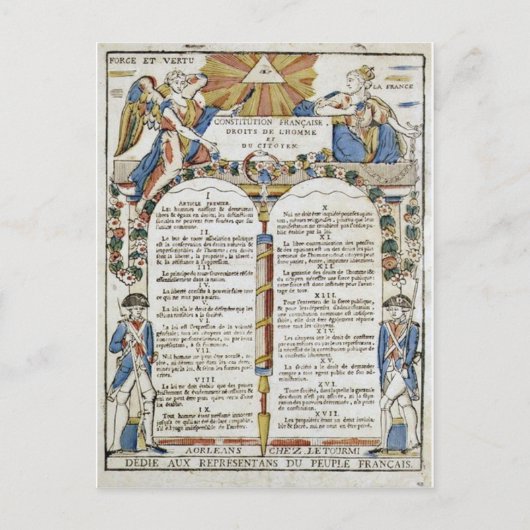 FORCE ET VERTU
LA FRANCE
CONSTITUTION FRANÇAISE.
DROITS DE L'HOMME
ET
DU CITOYEN.
I
ARTICLE PREMIER
Les hommes naissent & demeurent
libres & égaux en droits, les distinctions
sociales ne peuvent être fondées que sur
l'utilité commune.
II.
Le but de toute association politique
est la conservation des droits naturels &
imprescriptibles de l'homme; ces droits
sont la liberté, la propriété, la sûreté,
& la résistance à l'oppression.
III.
Le principe de toute souveraineté réside
essentiellement dans la nation.
IV.
La liberté consiste à pouvoir faire tout
ce qui ne nuit pas à autrui.
V.
La loi n'a le droit de défendre que les
actions nuisibles à la société.
VI.
La loi est l'expression de la volonté
VII.
Nul homme ne peut être
VIII.
La loi ne doit établir que des peines
IX.
Tout homme étant présumé innocent
X.
Nul ne doit être inquiété pour ses opinions,
XI.
La libre communication des pensées
& des opinions est un des droits les plus
précieux de l'homme: tout citoyen peut
donc parler, écrire, imprimer librement.
XII.
La garantie des droits de l'homme & du
citoyen, nécessite une force publique;
cette force est donc instituée pour l'avan-
tage de tous.
XIII.
Pour l'entretien de la force publique,
& pour les dépenses d'administration,
une contribution commune est indispen-
sible, elle doit être également répartie
entre tous les citoyens.
XIV.
Les citoyens ont le droit de constater
par eux mêmes ou par leurs représentans,
la nécessité de la contribution publique &
la consentir librement.
XV.
La société a le droit de demander
compte à tout agent public de son ad-
ministration.
XVI.
Toute société, dans laquelle la garantie
des droits n'est pas assurée, ni la sépa-
ration des pouvoirs déterminée, n'a point
de constitution.
XVII.
Les propriétés étant un droit inviola-
ble & sacré, nul ne peut en être privé.
A ORLEANS CHEZ LETOURMI
DÉDIÉ AUX REPRESENTANS DU PEUPLE FRANÇAIS.